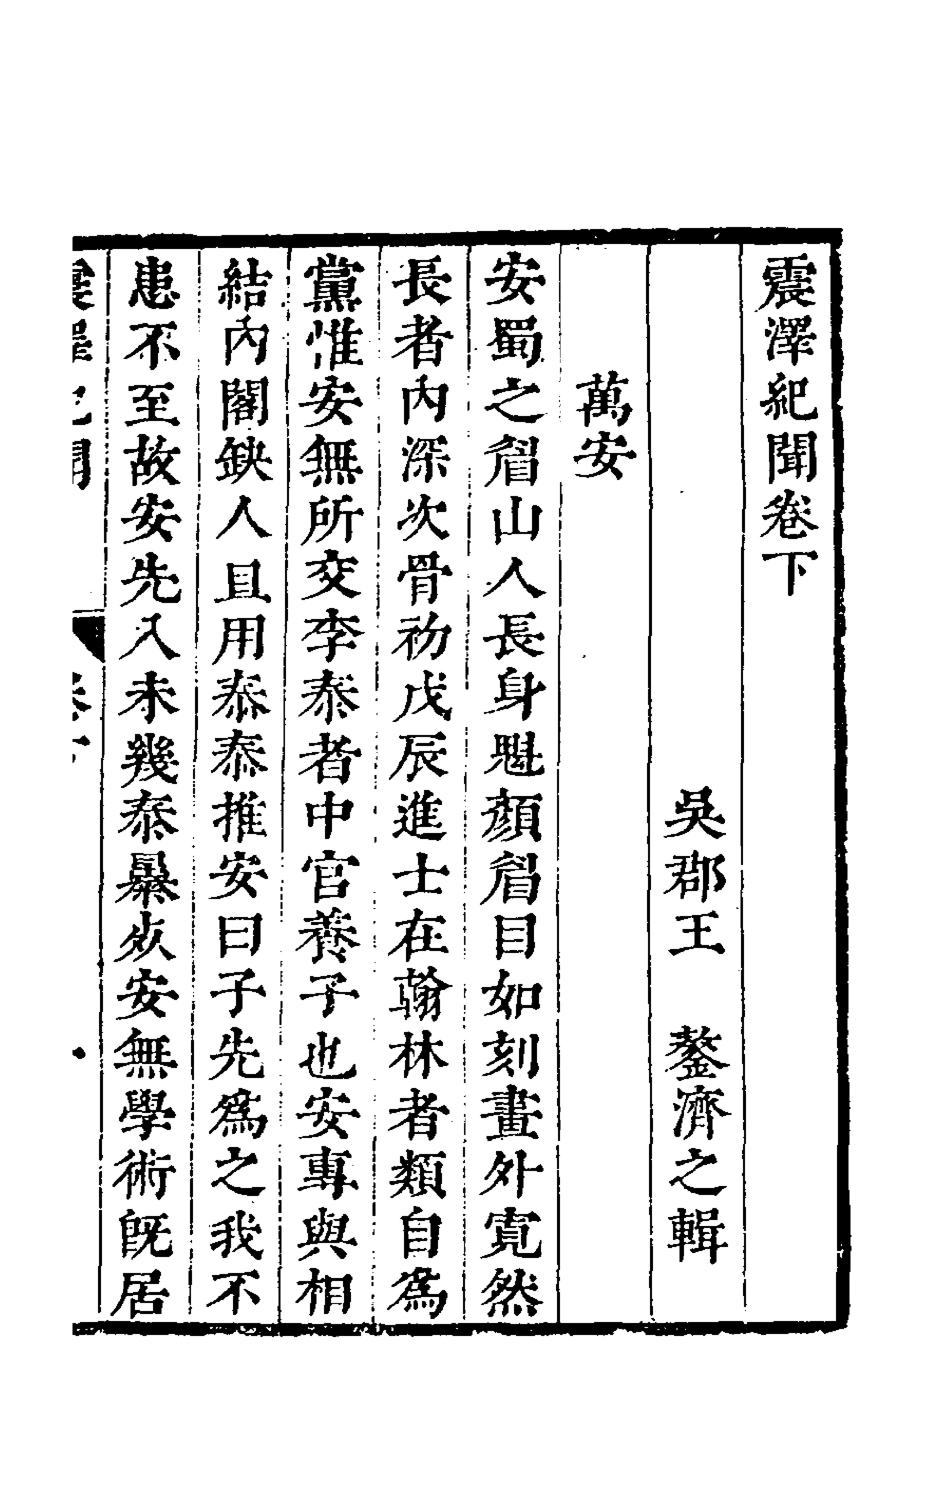 震澤紀聞卷下
吳郡王　鏊濟之輯
萬安
安蜀之眉山人長身魁顏眉目如刻畫外寛然
長者內深次骨初戊辰進士在翰林者類自爲
黨惟安無所交李泰者中官養子也安專與相
結內閣缺人且用泰泰推安曰子先爲之我不
患不至故安先入未幾泰暴死安無學術旣居